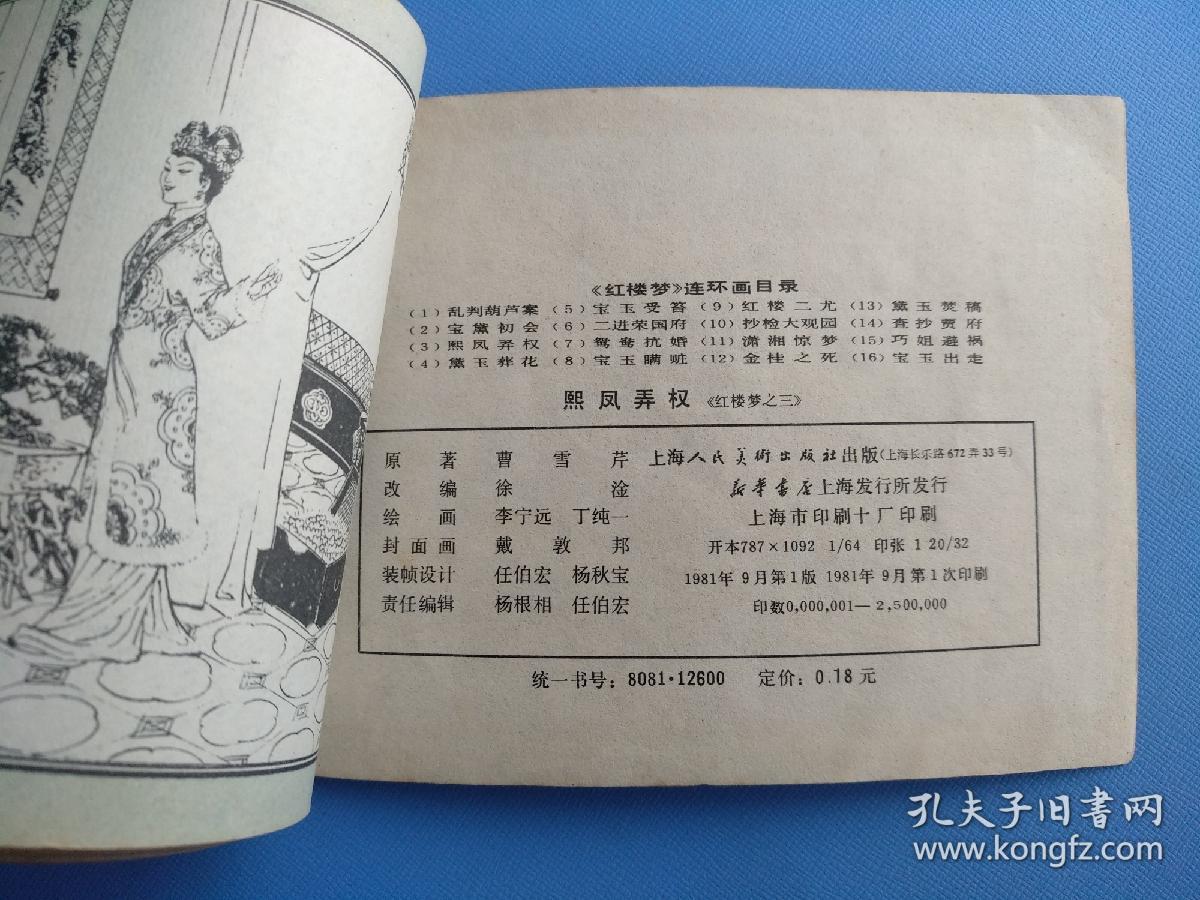 《红楼梦》连环画目录
(1) 乱判葫芦案 (5) 宝玉受笞 (9) 红楼二尤 (13) 黛玉焚稿
(2) 宝黛初会 (6) 二进荣国府 (10) 抄检大观园 (14) 查抄贾府
(3) 熙凤弄权 (7) 鸳鸯抗婚 (11) 潇湘惊梦 (15) 巧姐避祸
(4) 黛玉葬花 (8) 宝玉瞒赃 (12) 金桂之死 (16) 宝玉出走
熙凤弄权 《红楼梦之三》
原著 曹雪芹
改编 徐淦
绘画 李宁远 丁纯一
封面画 戴敦邦
装帧设计 任伯宏 杨秋宝
责任编辑 杨根相 任伯宏
上海人民美術出版社出版(上海长乐路672弄33号)
新华書店上海发行所发行
上海市印刷十厂印刷
开本787×1092 1/64 印张 1 20/32
1981年9月第1版 1981年9月第1次印刷
印数0,000,001—2,500,000
统一书号: 8081·12600 定价: 0.18元
孔夫子旧书网
www.kongfz.com